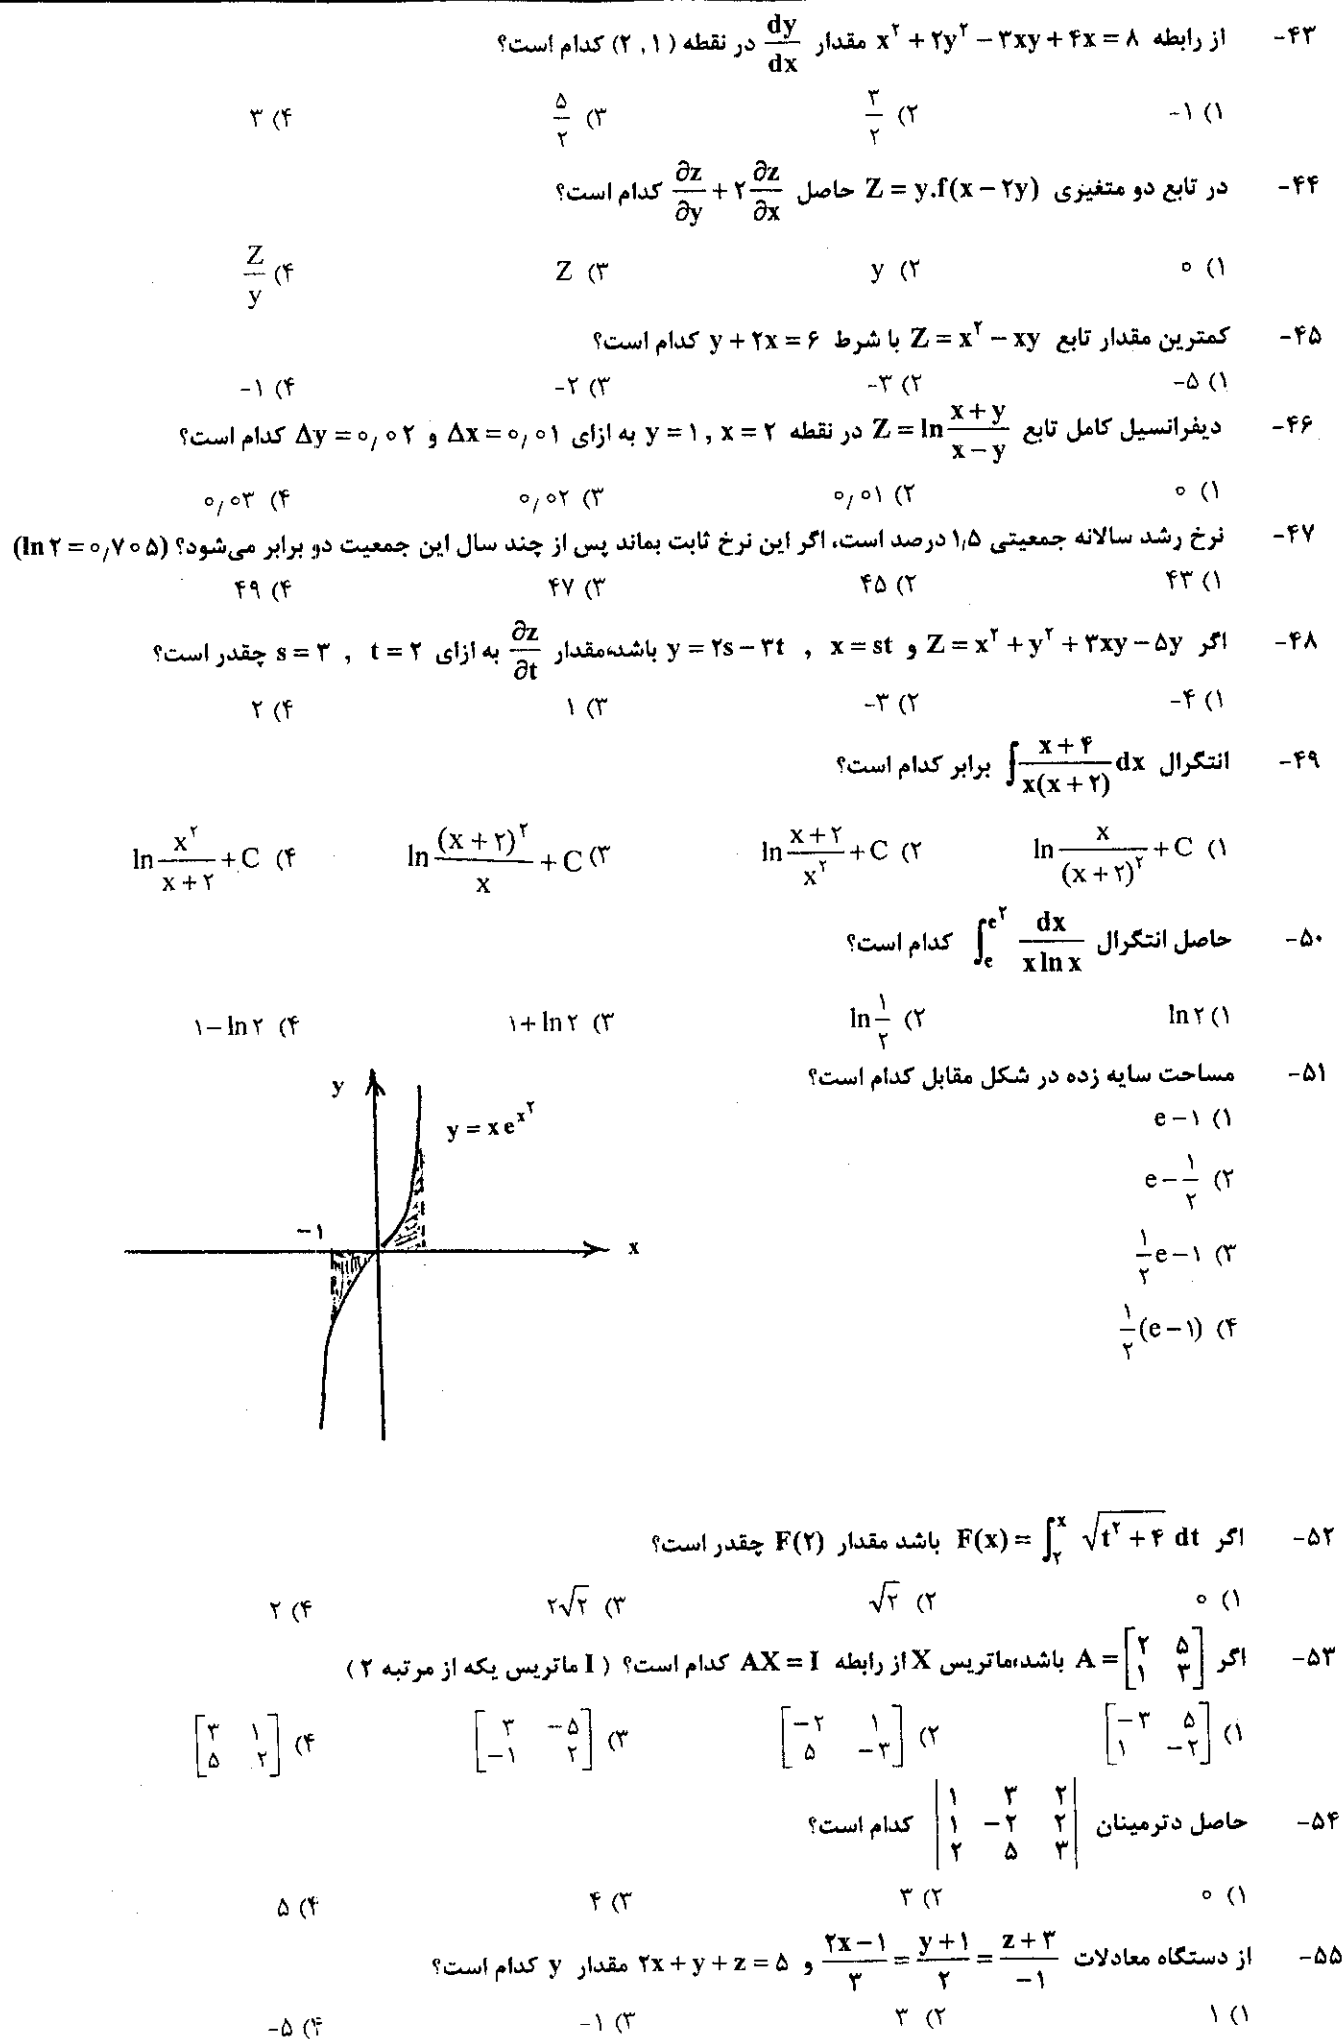 ۴۳- از رابطه x² + ۲y² − ۳xy + ۴x = ۸ مقدار dy/dx در نقطه (۲ , ۱) کدام است؟
۱) −۱ ۲) ۳/۲ ۳) ۵/۲ ۴) ۳
۴۴- در تابع دو متغیری Z = y.f(x − ۲y) حاصل ∂z/∂y + ۲ ∂z/∂x کدام است؟
۱) ۰ ۲) y ۳) Z ۴) Z/y
۴۵- کمترین مقدار تابع Z = x² − xy با شرط y + ۲x = ۶ کدام است؟
۱) −۵ ۲) −۳ ۳) −۲ ۴) −۱
۴۶- دیفرانسیل کامل تابع Z = ln (x + y)/(x − y) در نقطه y = ۱ , x = ۲ به ازای Δx = ۰٫۰۱ و Δy = ۰٫۰۲ کدام است؟
۱) ۰ ۲) ۰٫۰۱ ۳) ۰٫۰۲ ۴) ۰٫۰۳
۴۷- نرخ رشد سالانه جمعیتی ۱٫۵ درصد است، اگر این نرخ ثابت بماند پس از چند سال این جمعیت دو برابر می‌شود؟ (ln ۲ = ۰٫۷۰۵)
۱) ۴۳ ۲) ۴۵ ۳) ۴۷ ۴) ۴۹
۴۸- اگر Z = x² + y² + ۳xy − ۵y و x = st , y = ۲s − ۳t باشد،مقدار ∂z/∂t به ازای s = ۳ , t = ۲ چقدر است؟
۱) −۴ ۲) −۳ ۳) ۱ ۴) ۲
۴۹- انتگرال ∫ (x + ۴)/(x(x + ۲)) dx برابر کدام است؟
۱) ln x/(x + ۲)² + C ۲) ln (x + ۲)/x² + C ۳) ln (x + ۲)²/x + C ۴) ln x²/(x + ۲) + C
۵۰- حاصل انتگرال ∫ₑ^(e²) dx/(x ln x) کدام است؟
۱) ln ۲ ۲) ln ۱/۲ ۳) ۱ + ln ۲ ۴) ۱ − ln ۲
۵۱- مساحت سایه زده در شکل مقابل کدام است؟
۱) e − ۱
۲) e − ۱/۲
۳) ۱/۲ e − ۱
۴) ۱/۲ (e − ۱)
y
y = x e^(x²)
−۱
x
۵۲- اگر F(x) = ∫₂ˣ √(t² + ۴) dt باشد مقدار F(۲) چقدر است؟
۱) ۰ ۲) √۲ ۳) ۲√۲ ۴) ۲
۵۳- اگر A = [۲ ۵; ۱ ۳] باشد،ماتریس X از رابطه AX = I کدام است؟ (I ماتریس یکه از مرتبه ۲)
۱) [−۳ ۵; ۱ −۲] ۲) [−۲ ۱; ۵ −۳] ۳) [۳ −۵; −۱ ۲] ۴) [۳ ۱; ۵ ۲]
۵۴- حاصل دترمینان |۱ ۳ ۲; ۱ −۲ ۲; ۲ ۵ ۳| کدام است؟
۱) ۰ ۲) ۳ ۳) ۴ ۴) ۵
۵۵- از دستگاه معادلات (۲x − ۱)/۳ = (y + ۱)/۲ = (z + ۳)/−۱ و ۲x + y + z = ۵ مقدار y کدام است؟
۱) ۱ ۲) ۳ ۳) −۱ ۴) −۵